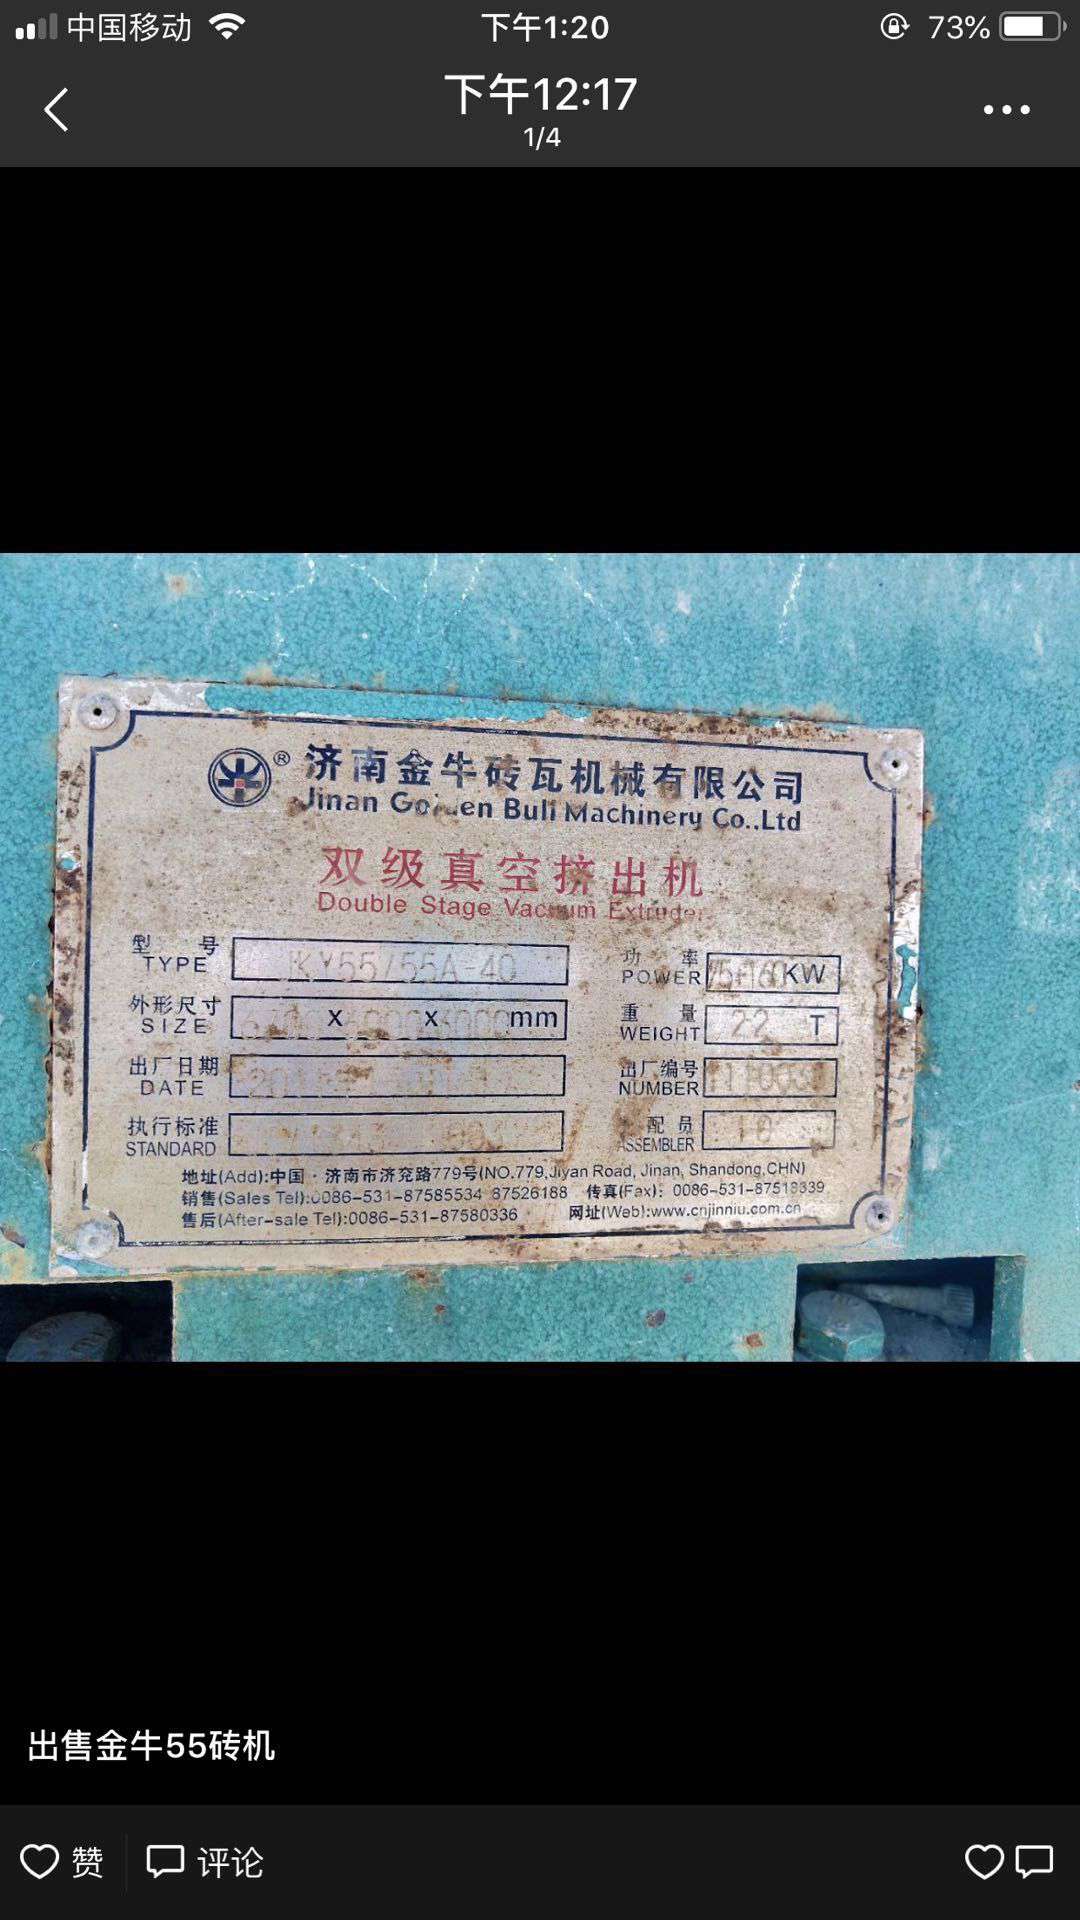 中国移动 下午1:20 73%
下午12:17
1/4
® 济南金牛砖瓦机械有限公司
Jinan Golden Bull Machinery Co.,Ltd
双级真空挤出机
Double Stage Vacuum Extruder
型 号 TYPE JKY55/55A-40
功 率 POWER KW
外形尺寸 SIZE x x mm
重 量 WEIGHT 22 T
出厂日期 DATE
出厂编号 NUMBER
执行标准 STANDARD
配 员 ASSEMBLER 10
地址(Add):中国·济南市济兖路779号(NO.779,Jiyan Road, Jinan, Shandong,CHN)
销售(Sales Tel):0086-531-87585534 87526188 传真(Fax): 0086-531-87518339
售后(After-sale Tel):0086-531-87580336 网址(Web):www.cnjinniu.com.cn
出售金牛55砖机
赞 评论